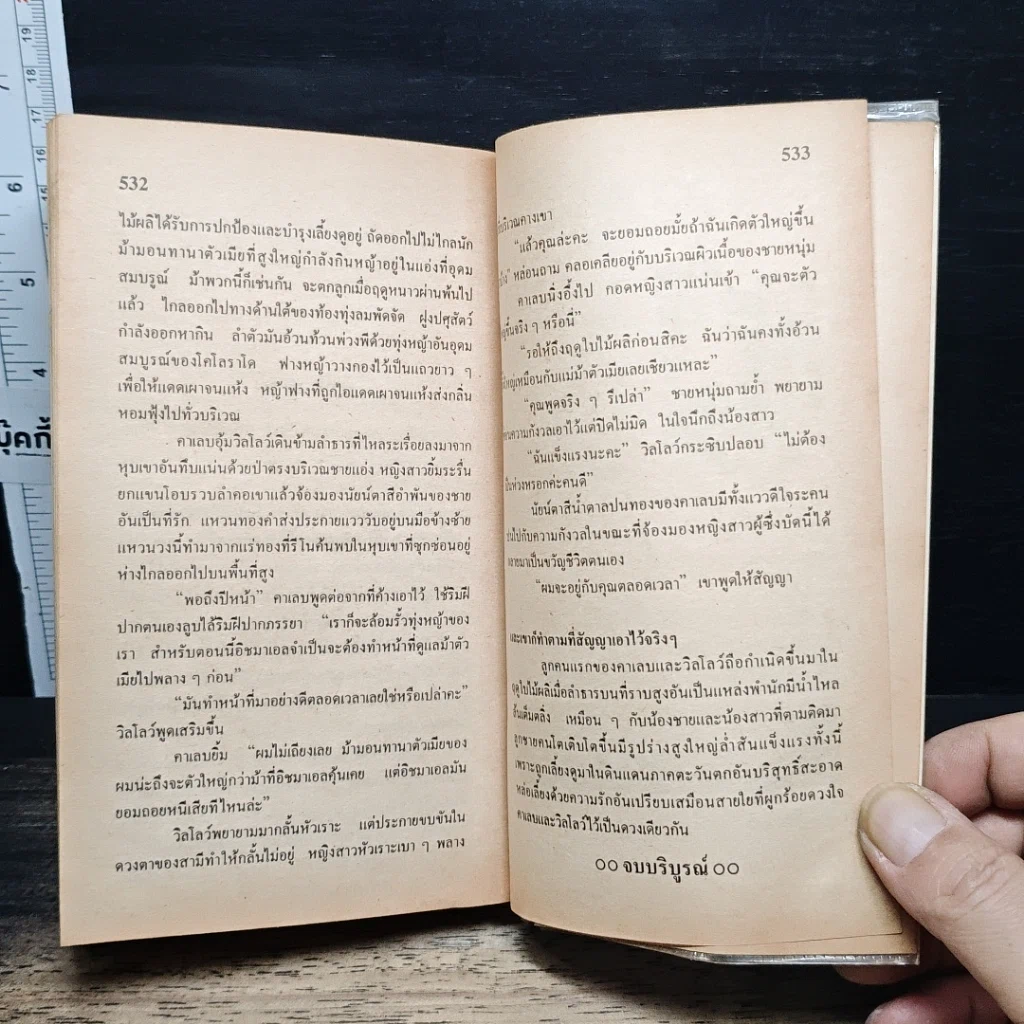 532
ไม้ผลิได้รับการปกป้องและบำรุงเลี้ยงดูอยู่ ถัดออกไปไม่ไกลนัก
ม้ามอนทานาตัวเมียที่สูงใหญ่กำลังกินหญ้าอยู่ในแอ่งที่อุดม
สมบูรณ์ ม้าพวกนี้ก็เช่นกัน จะตกลูกเมื่อฤดูหนาวผ่านพ้นไป
แล้ว ไกลออกไปทางด้านใต้ของท้องทุ่งลมพัดจัด ฝูงปศุสัตว์
กำลังออกหากิน ลำตัวมันอ้วนท้วนพ่วงพีด้วยทุ่งหญ้าอันอุดม
สมบูรณ์ของโคโลราโด ฟางหญ้าวางกองไว้เป็นแถวยาว ๆ
เพื่อให้แดดเผาจนแห้ง หญ้าฟางที่ถูกไอแดดเผาจนแห้งส่งกลิ่น
หอมฟุ้งไปทั่วบริเวณ
คาเลบอุ้มวิลโลว์เดินข้ามลำธารที่ไหลระเรื่อยลงมาจาก
หุบเขาอันทึบแน่นด้วยป่าตรงบริเวณชายแอ่ง หญิงสาวยิ้มระรื่น
ยกแขนโอบรวบลำคอเขาแล้วจ้องมองนัยน์ตาสีอำพันของชาย
อันเป็นที่รัก แหวนทองคำส่งประกายแวววับอยู่บนมือข้างซ้าย
แหวนวงนี้ทำมาจากแร่ทองที่รีโนค้นพบในหุบเขาที่ซุกซ่อนอยู่
ห่างไกลออกไปบนพื้นที่สูง
“พอถึงปีหน้า” คาเลบพูดต่อจากที่ค้างเอาไว้ ใช้ริมฝี
ปากตนเองลูบไล้ริมฝีปากภรรยา “เราก็จะล้อมรั้วทุ่งหญ้าของ
เรา สำหรับตอนนี้อิชมาเอลจำเป็นจะต้องทำหน้าที่ดูแลม้าตัว
เมียไปพลาง ๆ ก่อน”
“มันทำหน้าที่มาอย่างดีตลอดเวลาเลยใช่หรือเปล่าคะ”
วิลโลว์พูดเสริมขึ้น
คาเลบยิ้ม “ผมไม่เถียงเลย ม้ามอนทานาตัวเมียของ
ผมน่ะถึงจะตัวใหญ่กว่าม้าที่อิชมาเอลคุ้นเคย แต่อิชมาเอลมัน
ยอมถอยหนีเสียทีไหนล่ะ”
วิลโลว์พยายามมากลั้นหัวเราะ แต่ประกายขบขันใน
ดวงตาของสามีทำให้กลั้นไม่อยู่ หญิงสาวหัวเราะเบา ๆ พลาง
533
บริเวณคางเขา
“แล้วคุณล่ะคะ จะยอมถอยมั้ยถ้าฉันเกิดตัวใหญ่ขึ้น
หล่อนถาม คลอเคลียอยู่กับบริเวณผิวเนื้อของชายหนุ่ม
คาเลบนิ่งอึ้งไป กอดหญิงสาวแน่นเข้า “คุณจะตัว
ขึ้นจริง ๆ หรือนี่”
“รอให้ถึงฤดูใบไม้ผลิก่อนสิคะ ฉันว่าฉันคงทั้งอ้วน
ใหญ่เหมือนกับแม่ม้าตัวเมียเลยเชียวแหละ”
“คุณพูดจริง ๆ รึเปล่า” ชายหนุ่มถามย้ำ พยายาม
ความกังวลเอาไว้แต่ปิดไม่มิด ในใจนึกถึงน้องสาว
“ฉันแข็งแรงนะคะ” วิลโลว์กระซิบปลอบ “ไม่ต้อง
ห่วงหรอกค่ะคนดี”
นัยน์ตาสีน้ำตาลปนทองของคาเลบมีทั้งแววดีใจระคน
ไปกับความกังวลในขณะที่จ้องมองหญิงสาวผู้ซึ่งบัดนี้ได้
มาเป็นขวัญชีวิตตนเอง
“ผมจะอยู่กับคุณตลอดเวลา” เขาพูดให้สัญญา
และเขาก็ทำตามที่สัญญาเอาไว้จริงๆ
ลูกคนแรกของคาเลบและวิลโลว์ถือกำเนิดขึ้นมาใน
ฤดูใบไม้ผลิเมื่อลำธารบนที่ราบสูงอันเป็นแหล่งพำนักมีน้ำไหล
ล้นเต็มตลิ่ง เหมือน ๆ กับน้องชายและน้องสาวที่ตามติดมา
ลูกชายคนโตเติบโตขึ้นมีรูปร่างสูงใหญ่ล่ำสันแข็งแรงทั้งนี้
เพราะถูกเลี้ยงดูมาในดินแดนภาคตะวันตกอันบริสุทธิ์สะอาด
หล่อเลี้ยงด้วยความรักอันเปรียบเสมือนสายใยที่ผูกร้อยดวงใจ
คาเลบและวิลโลว์ไว้เป็นดวงเดียวกัน
○○ จบบริบูรณ์ ○○
7
6
5
4
19
18
17
16